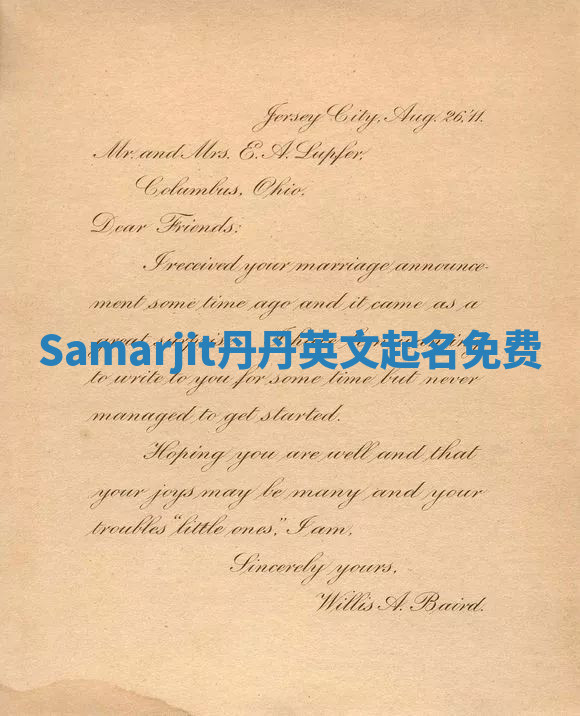 Jersey City, Aug. 26, '11.
Mr. and Mrs. E. A. Lupfer,
Columbus, Ohio.
Dear Friends:
I received your marriage announce-
ment some time ago and it came as a
great
Samarjit丹丹英文起名免费
to write to you for some time but never
managed to get started.
Hoping you are well and that
your joys may be many and your
troubles "little ones," I am,
Sincerely yours,
Willis A. Baird.